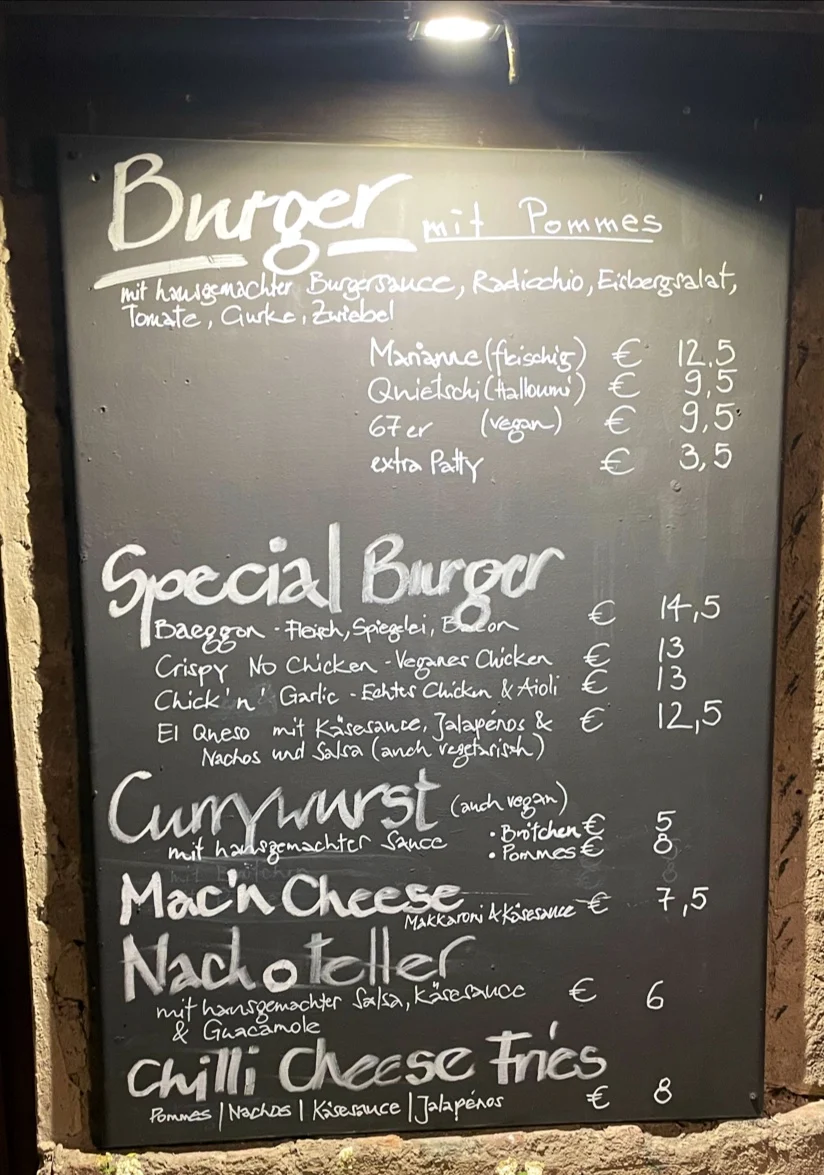 Burger mit Pommes
mit hausgemachter Burgersauce, Radicchio, Eisbergsalat,
Tomate, Gurke, Zwiebel
Marianne (fleischig) € 12,5
Quietschi (Halloumi) € 9,5
67er (vegan) € 9,5
extra Patty € 3,5
Special Burger
Baeggon - Fleisch, Spiegelei, Bacon € 14,5
Crispy No Chicken - Veganes Chicken € 13
Chick'n' Garlic - Echtes Chicken & Aioli € 13
El Queso mit Käsesauce, Jalapénos & € 12,5
Nachos und Salsa (auch vegetarisch)
Currywurst (auch vegan)
mit hausgemachter Sauce • Brötchen € 5
• Pommes € 8
Mac'n Cheese
Makkaroni & Käsesauce € 7,5
Nachoteller
mit hausgemachter Salsa, Käsesauce € 6
& Guacamole
Chilli Cheese Fries
Pommes | Nachos | Käsesauce | Jalapénos € 8